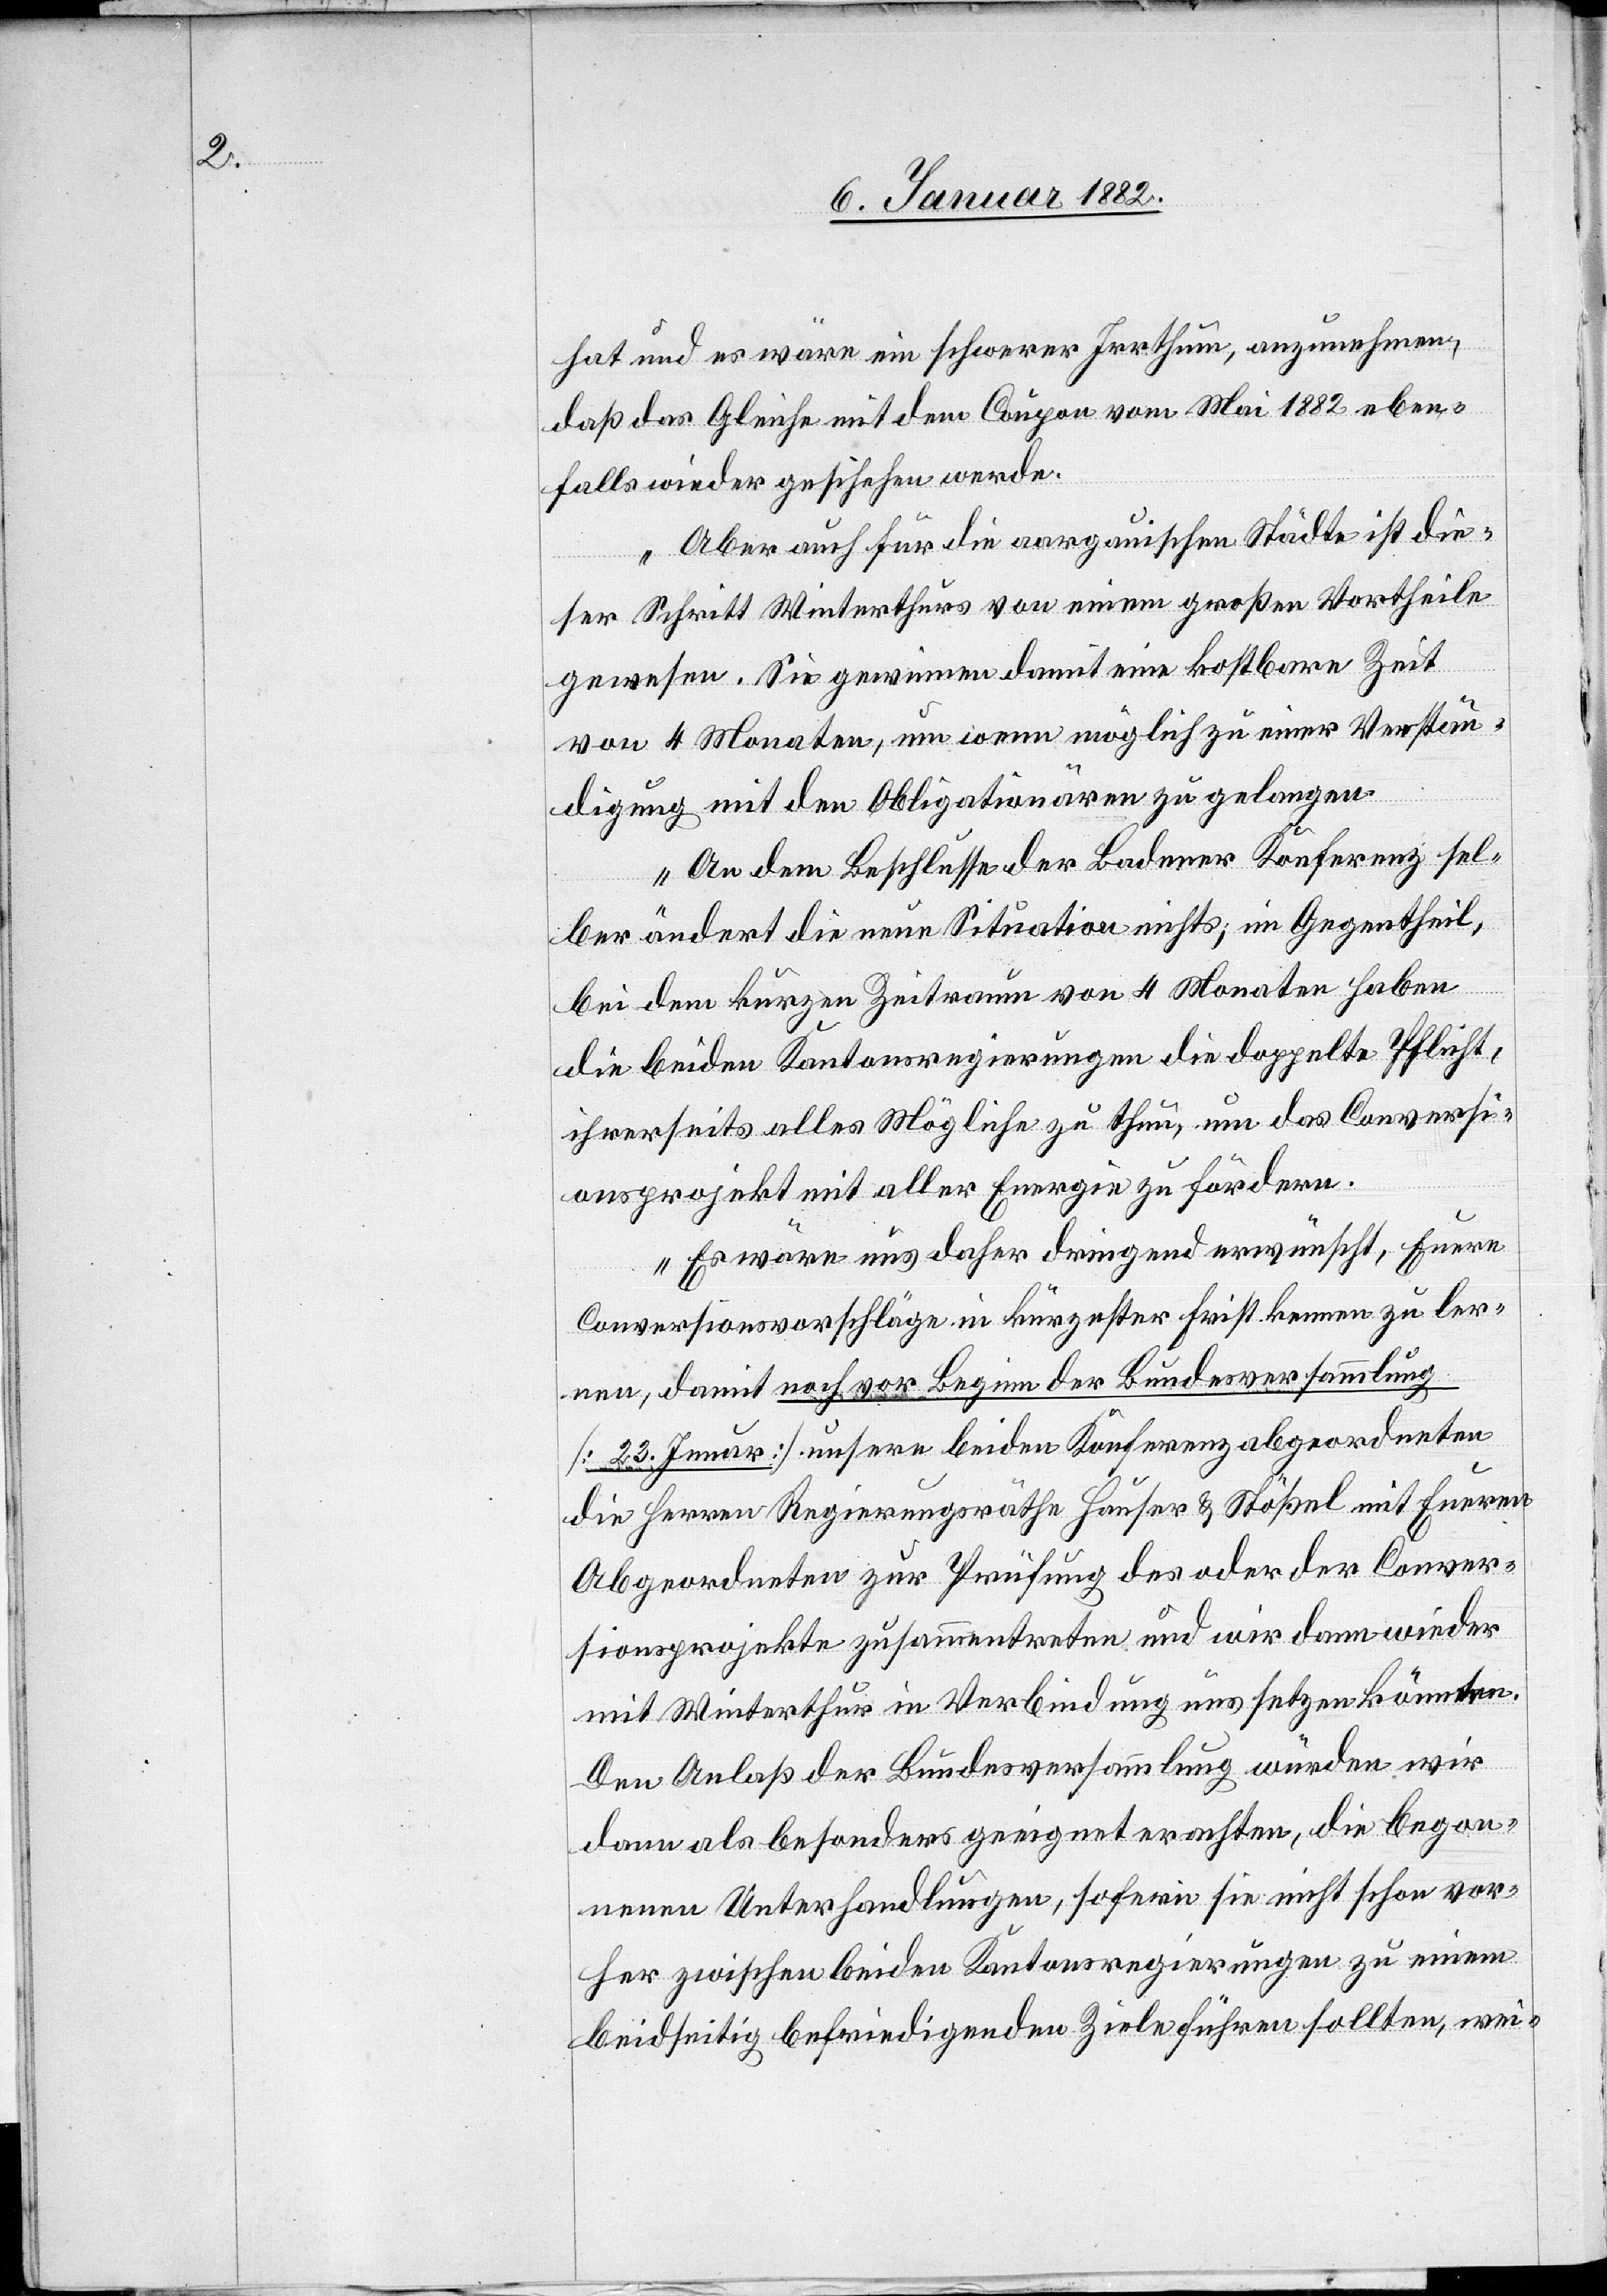 2.
6. Januar 1882.
hat und es wäre ein schwerer Irrthum, anzunehmen,
daß das Gleiche mit dem Coupon vom Mai 1882 eben-
falls wieder geschehen werde.
„Aber auch für die aargauischen Städte ist die-
ser Schritt Winterthurs von einem großen Vortheile
gewesen. Sie gewinnen damit eine kostbare Zeit
von 4 Monaten, um wenn möglich zu einer Verstän-
digung mit den Obligationären zu gelangen.
„An dem Beschlusse der Badener Konferenz sel-
ber ändert die neue Situation nichts; im Gegentheil,
bei dem kurzen Zeitraum von 4 Monaten haben
die beiden Kantonsregierungen die doppelte Pflicht,
ihrerseits alles Mögliche zu thun, um das Conversi-
onsprojekt mit aller Energie zu fördern.
„Es wäre uns daher dringend erwünscht, Euere
Conversionsvorschläge in kürzester Frist kennen zu ler-
nen, damit noch vor Beginn der Bundesversammlung
/: 23. Jenuar :/ unsere beiden Konferenzabgeordneten
die Herren Regierungsräthe Hauser & Stößel mit Eueren
Abgeordneten zur Prüfung des oder der Conver-
sionsprojekte zusammentreten und wir dann wieder
mit Winterthur in Verbindung uns setzen könnten.
Den Anlaß der Bundesversammlung würden wir
dann als besonders geeignet erachten, die begon-
nenen Unterhandlungen, sofern sie nicht schon vor-
her zwischen beiden Kantonsregierungen zu einem
beidseitig befriedigenden Ziele führen sollten, wei-